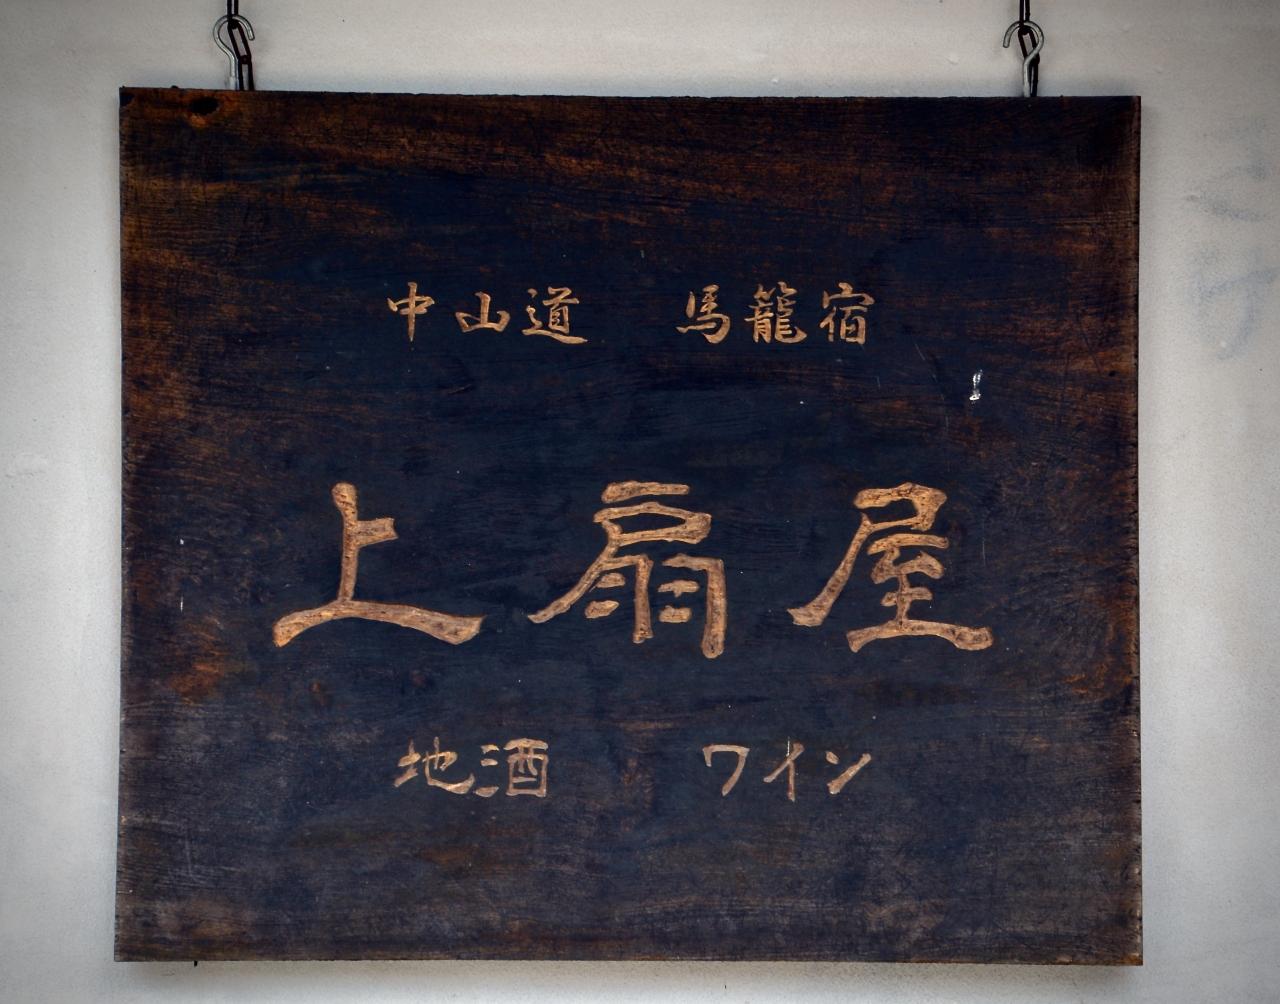 中山道 馬籠宿
上扇屋
地酒 ワイン